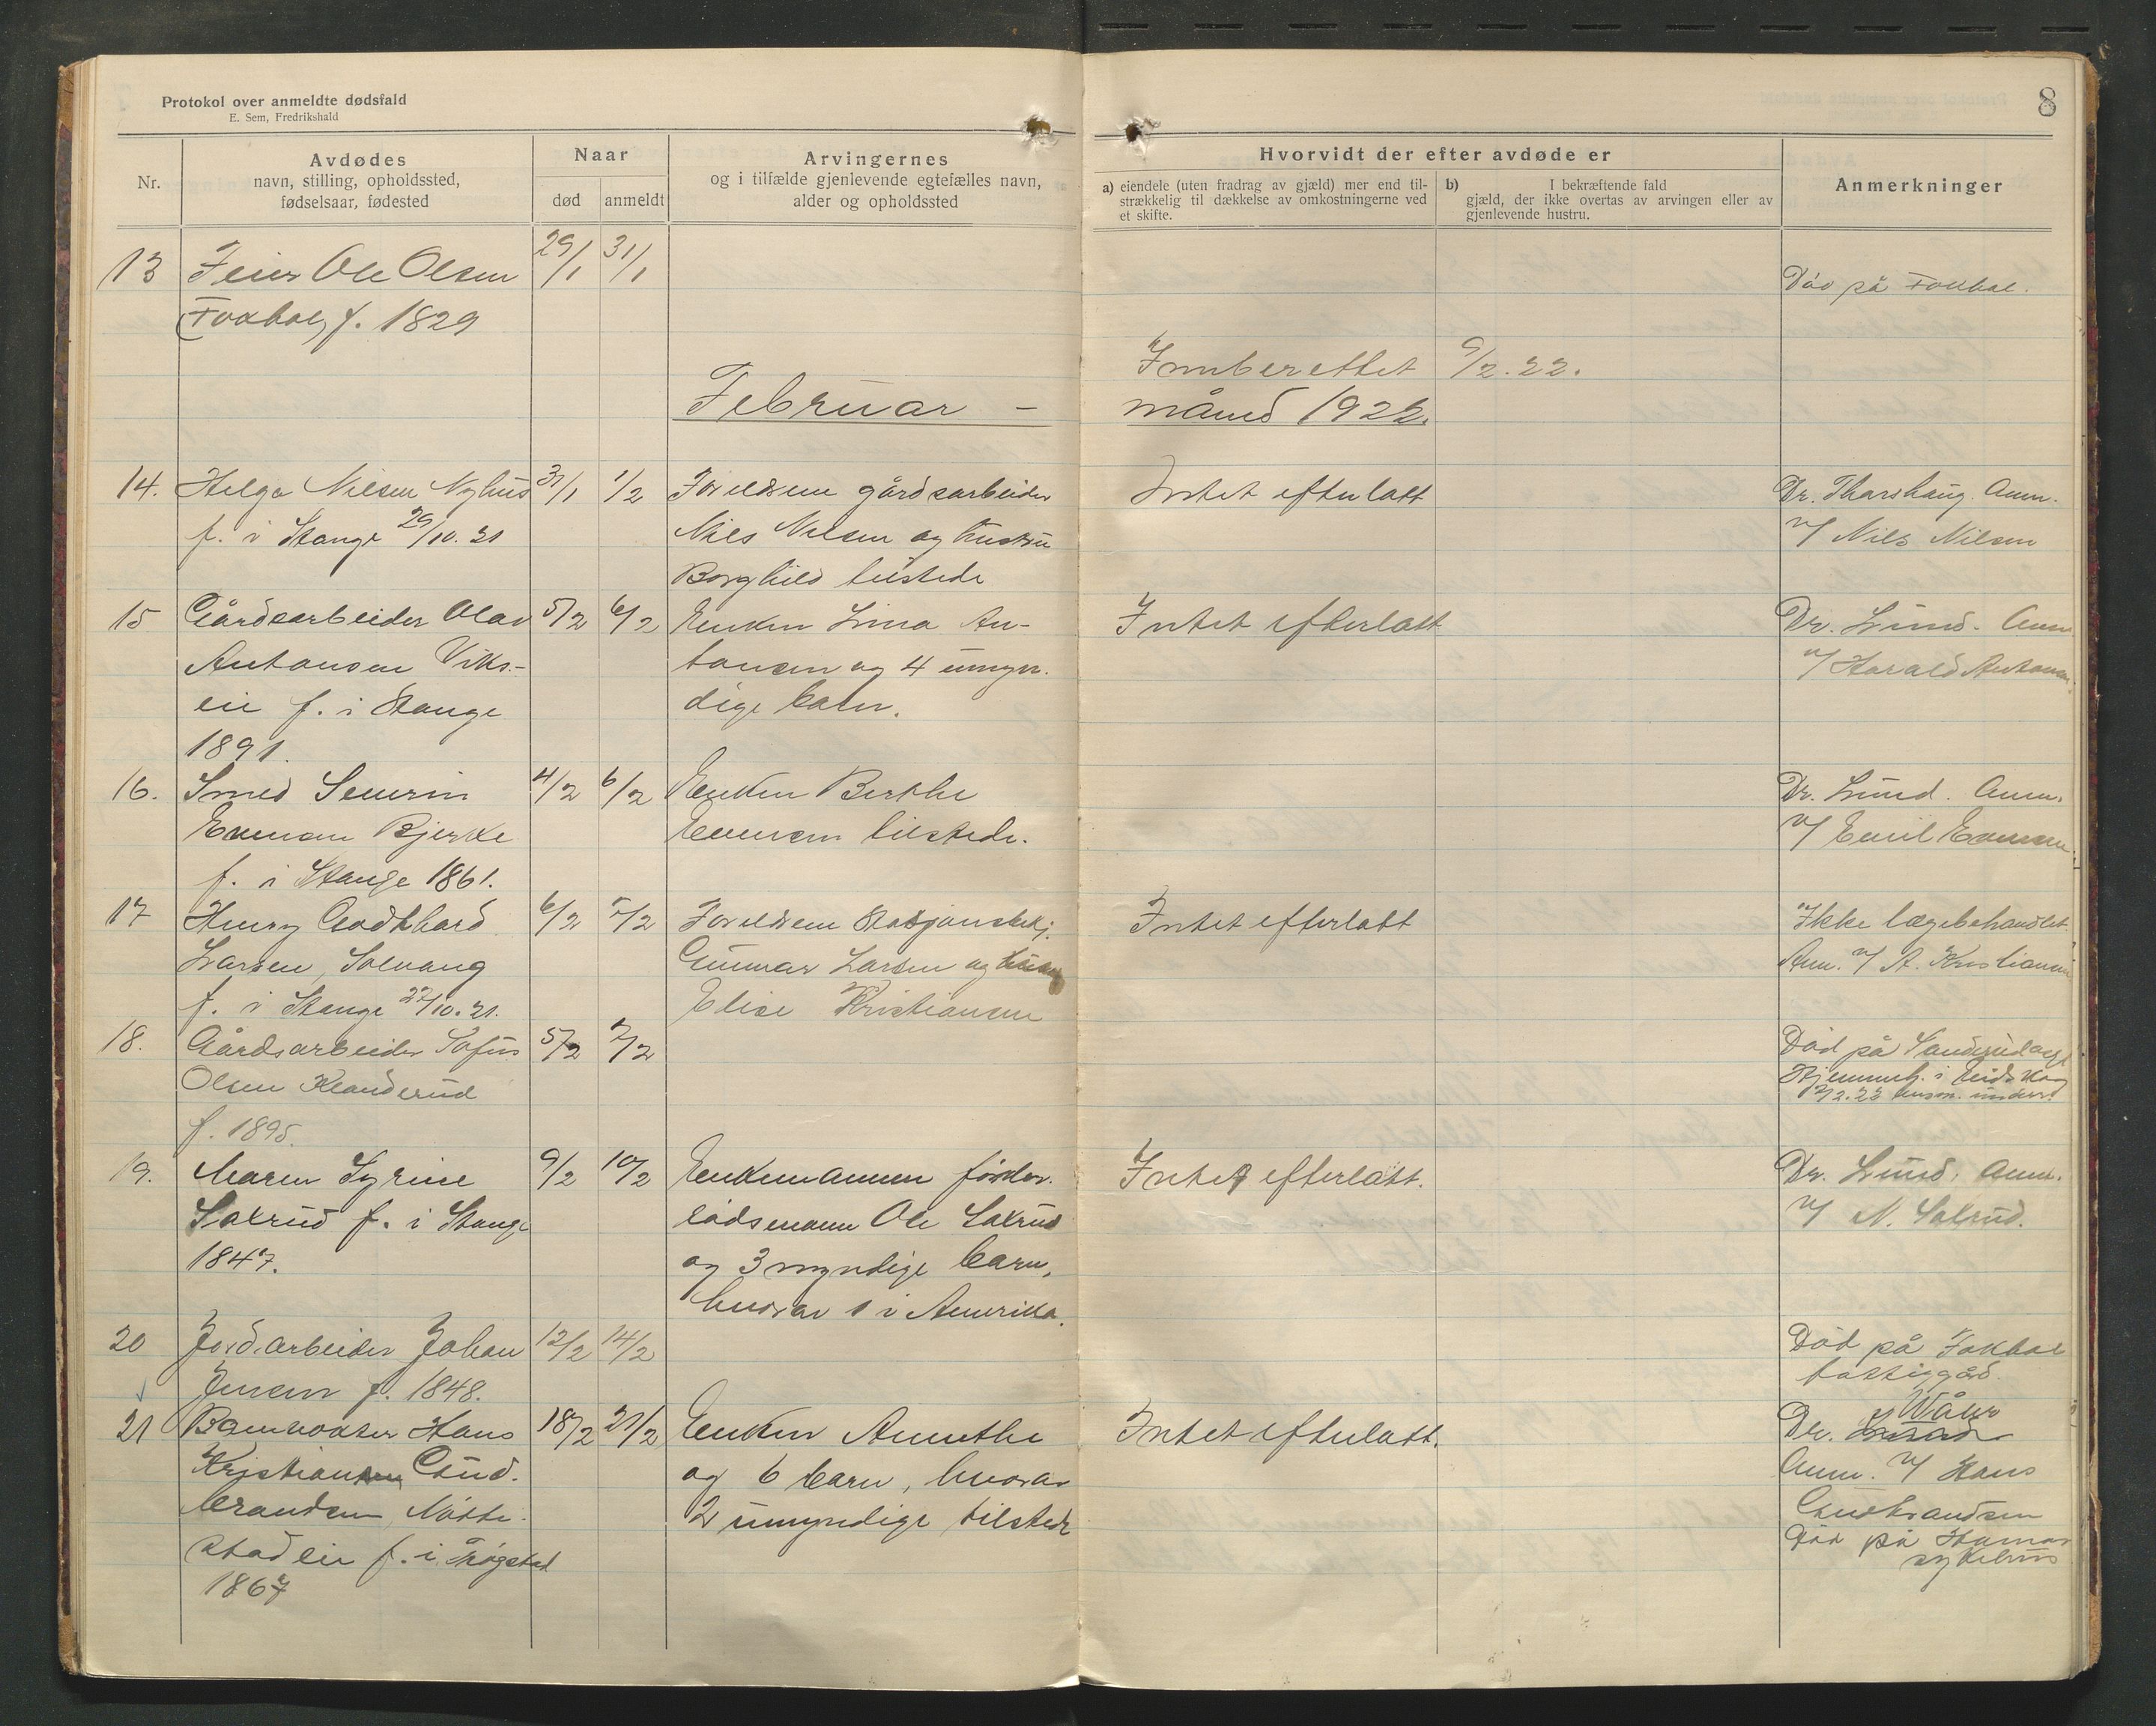 Protokol over anmeldte dødsfald
E. Sem, Fredrikshald
8
Nr.
Avdødes
navn, stilling, opholdssted,
fødselsaar, fødested
Naar
død
anmeldt
Arvingernes
og i tilfælde gjenlevende egtefælles navn,
alder og opholdssted
Hvorvidt der efter avdøde er
a) eiendele (uten fradrag av gjæld) mer end til-
strækkelig til dækkelse av omkostningerne ved
et skifte.
b) I bekræftende fald
gjæld, der ikke overtas av arvingen eller av
gjenlevende hustru.
Anmerkninger
13 Feier Ole Olsen 29/1 31/1 Död på Fokhol.
Fokhol, f. 1829
Innberettet 9/2.22.
Februar - måned 1922.
14. Helge Nilsen Nyhus 31/1 1/2 Foreldrene gårdsarbeider Intet efterlatt Dr. Thorshaug. Anm.
f. i Stange 29/10.21 Nils Nilsen og hustru v/ Nils Nilsen
Borghild tilstede
15 Gårdsarbeider Olav 5/2 6/2 Enken Lina An- Intet efterlatt Dr. Lund. Anm
Antonsen Viks- tonsen og 4 umyn- v/ Harald Antonsen.
eie f. i Stange dige barn.
1891.
16. Smed Severin 4/2 6/2 Enken Berthe Dr. Lund. Anm.
Evensen Bjerke Evensen tilstede. v/ Emil Evensen.
f. i Stange 1861.
17 Henry Godthard 6/2 7/2 Foreldrene Stasjonsbetj. Intet efterlatt Ikke lægebehandlet.
Larsen, Solvang Gunnar Larsen og Anm. v/ A. Kristiansen
f. i Stange 22/10.21. Elise Kristiansen
18. Gårdsarbeider Sofus 5/2 7/2 Död på Sanderud asyl
Olsen Klanderud Hjemmeh. i Eidskog
f. 1895.
19. Maren Syrine 9/2 10/2 Enkemannen forhen. Intet efterlatt. Dr. Lund. Anm.
Salrud f. i Stange lodsmann Ole Salrud v/ N. Salrud.
1847. og 3 myndige barn,
hvorav 1 i Amerika.
20 Jordarbeider Johan 12/2 14/2 Död på Fokhol
Jensen f. 1848. fattiggård.
21 Banevokter Hans 18/2 21/2 Enken Anethe Intet efterlatt. Dr.
Kristiansen Gud- og 6 barn, hvorav Anm. v/ Hans
brandsen, Nötte- 2 umyndige tilstede Gudbrandsen
stadeie f. i Död på Hamar
1867 sykehus